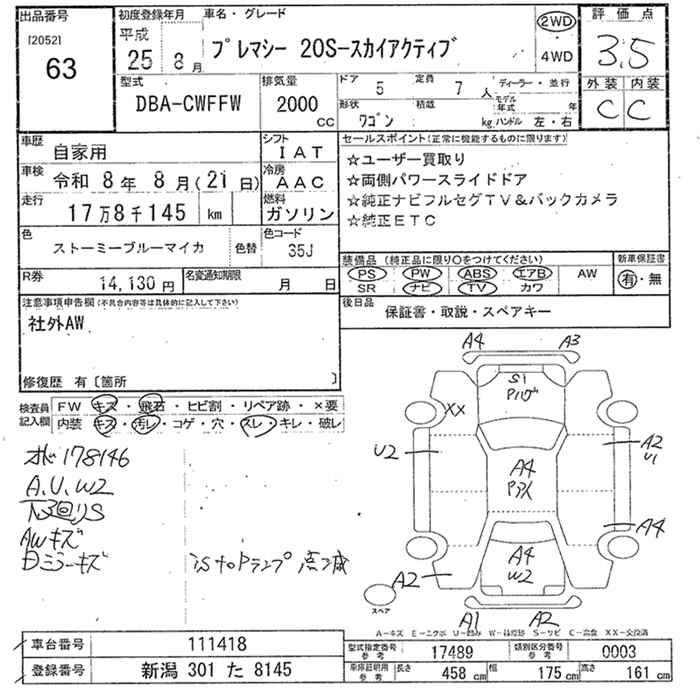 出品番号
[2052]
63
初度登録年月
平成
25 8月
車名・グレード
プレマシー 20S-スカイアクティブ
2WD
4WD
評価点
3.5
外装 内装
C C
型式
DBA-CWFFW
排気量
2000
cc
ドア 5
定員 7人
ディーラー・並行
モデル年式 年
形状
ワゴン
積載 kg
ハンドル 左・右
車歴
自家用
シフト
IAT
車検
令和 8年 8月(21日)
冷房
AAC
走行
17万8千145 km
燃料
ガソリン
色
ストーミーブルーマイカ
色替
色コード
35J
R券
14,130円
名変通知期限
月 日
セールスポイント(正常に機能するものに限ります)
☆ユーザー買取り
☆両側パワースライドドア
☆純正ナビフルセグTV&バックカメラ
☆純正ETC
装備品(純正品に限り○をつけてください)
新車保証書
PS PW ABS エアB AW
SR ナビ TV カワ
有・無
後日品
保証書・取説・スペアキー
注意事項申告欄(不具合内容等は具体的に記入して下さい)
社外AW
修復歴 有〔箇所 〕
検査員記入欄
FW キズ・飛石・ヒビ割・リペア跡・×要
内装 キズ・汚レ・コゲ・穴・スレ・キレ・破レ
178146
A.U.W2
AWキズ
A4 A3
S1
XX
U2
A2
U1
A4
A4
A4
W2
A2
A1 A2
スペア
A-キズ E-エクボ U-凹み W-補修跡 S-サビ C-腐食 XX-交換済
車台番号
111418
登録番号
新潟 301 た 8145
型式指定番号
参考
17489
類別区分番号
参考
0003
車庫証明用
参考
長さ 458 cm
幅 175 cm
高さ 161 cm